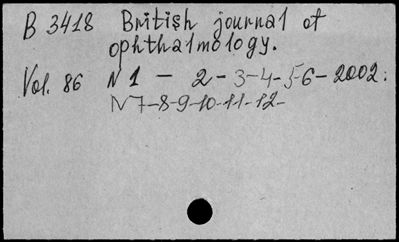 B 3418 British journal of
ophthalmology.
Vol. 86 N 1 - 2-3-4-5-6-2002:
N7-8-9-10-11-12-